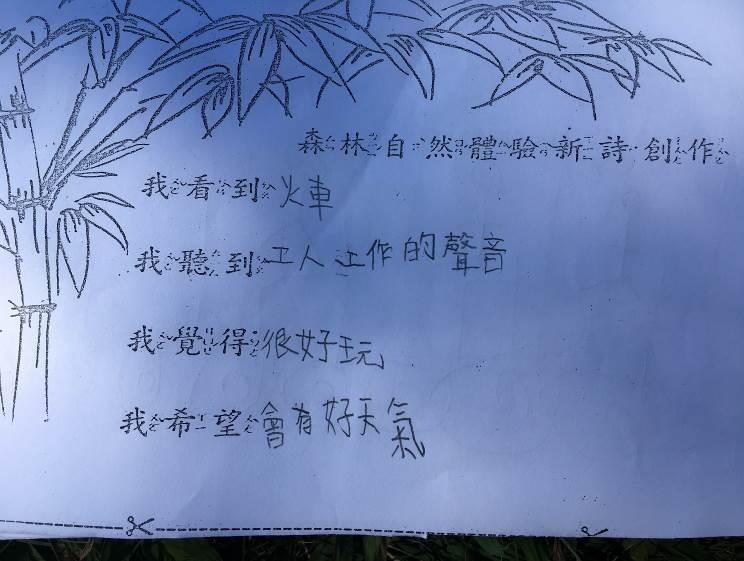 森林自然體驗新詩創作
我看到火車
我聽到工人工作的聲音
我覺得很好玩
我希望會有好天氣